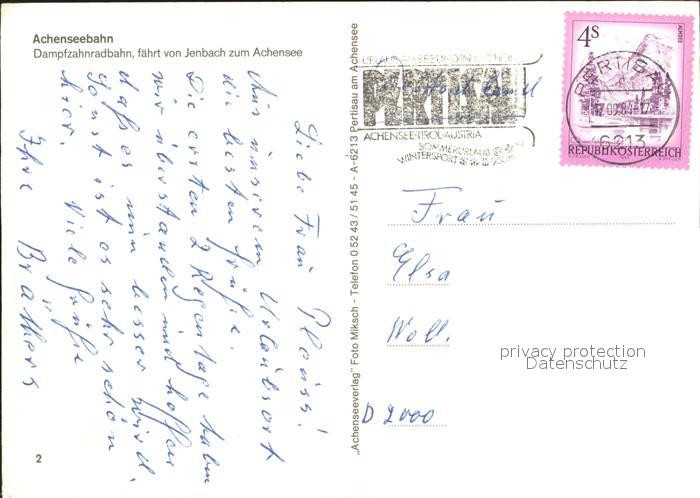 Achenseebahn
Dampfzahnradbahn, fährt von Jenbach zum Achensee
Liebe Frau
Aus unserem Urlaubsort
die besten Grüße.
Die ersten 2 Regentage haben
wir überstanden und hoffen
daß es nun besser wird.
Sonst ist es sehr schön
hier. Viele Grüße
Ihre
2
„Achenseeverlag" Foto Miksch - Telefon 0 52 43 / 51 45 - A-6213 Pertisau am Achensee
PERTISAU
ACHENSEE-TIROL-AUSTRIA
SOMMERURLAUB
WINTERSPORT
4S
ALMSEE
PERTISAU
17.09.84-17
6213
REPUBLIK ÖSTERREICH
Frau
Elsa
Woll.
D 2000
privacy protection
Datenschutz